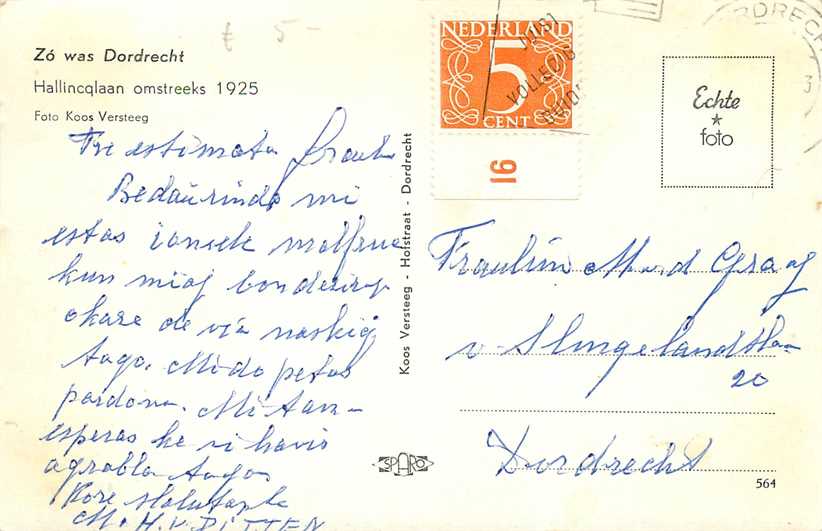 Zó was Dordrecht
Hallincqlaan omstreeks 1925
Foto Koos Versteeg
Tre estimata fraulin
Bedaŭrinde mi
estas ioniele malfrue
kun miaj bondeziroj
okaze de via naskiĝ
tago. Mi do petas
pardonon. Mi tam-
esperas ke vi havis
agrablan tagon
Kore salutanta
H. V. DITTEN
Koos Versteeg - Hofstraat - Dordrecht
NEDERLAND
5
CENT
JUIST
VOLLEDIG
DUIDE
16
DORDRECHT
Echte
foto
Fraulin M. v. d. Graag
v. Slingelandtlaan
20
Dordrecht
SPARO
564
5-